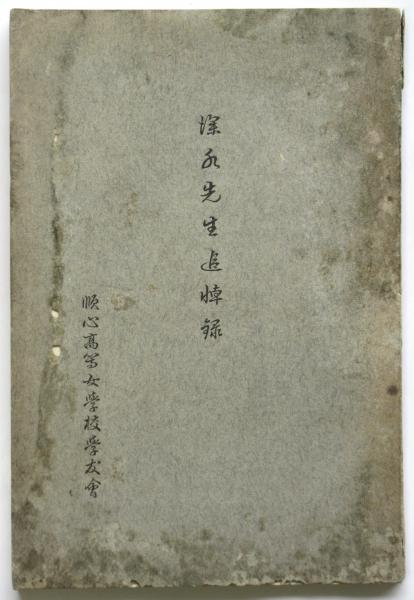 深水先生追悼録
順心高等女学校学友會